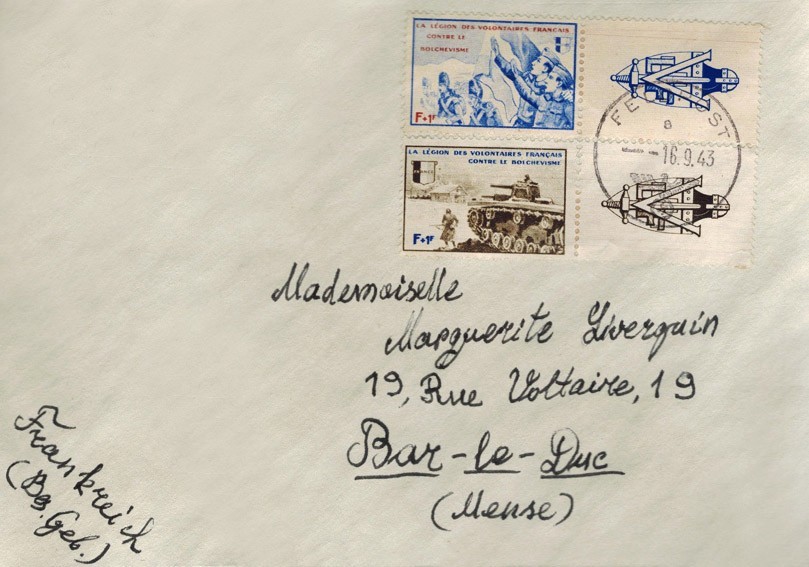 LA LÉGION DES VOLONTAIRES FRANÇAIS
CONTRE LE
BOLCHEVISME
F+1F
LA LÉGION DES VOLONTAIRES FRANÇAIS
CONTRE LE BOLCHEVISME
FRANCE
F+1F
16.9.43
Mademoiselle
Marguerite Liverquin
19, Rue Voltaire, 19
Bar-le-Duc
(Meuse)
Frankreich
(Bes. Geb.)